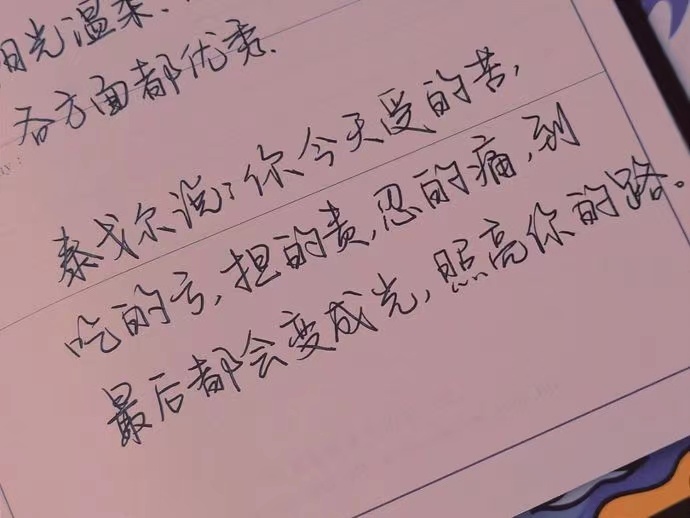 阳光温柔、
各方面都优秀.
泰戈尔说:你今天受的苦,
吃的亏,担的责,忍的痛,到
最后都会变成光,照亮你的路。